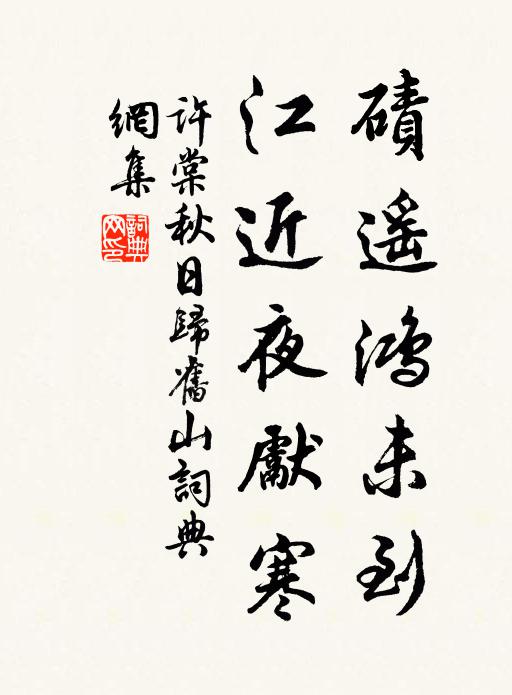 磧遥鴻未到
江近夜獻寒
許棠秋日歸舊山詞典
網集
詞典
网印